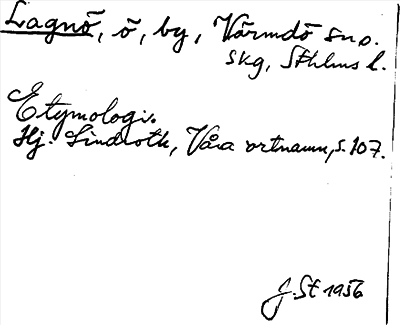 Lagnö, ö, by, Värmdö sn o.
skg, Sthlms l.
Etymologi.
Hj. Lindroth, Våra ortnamn, s. 107.
J. St 1956